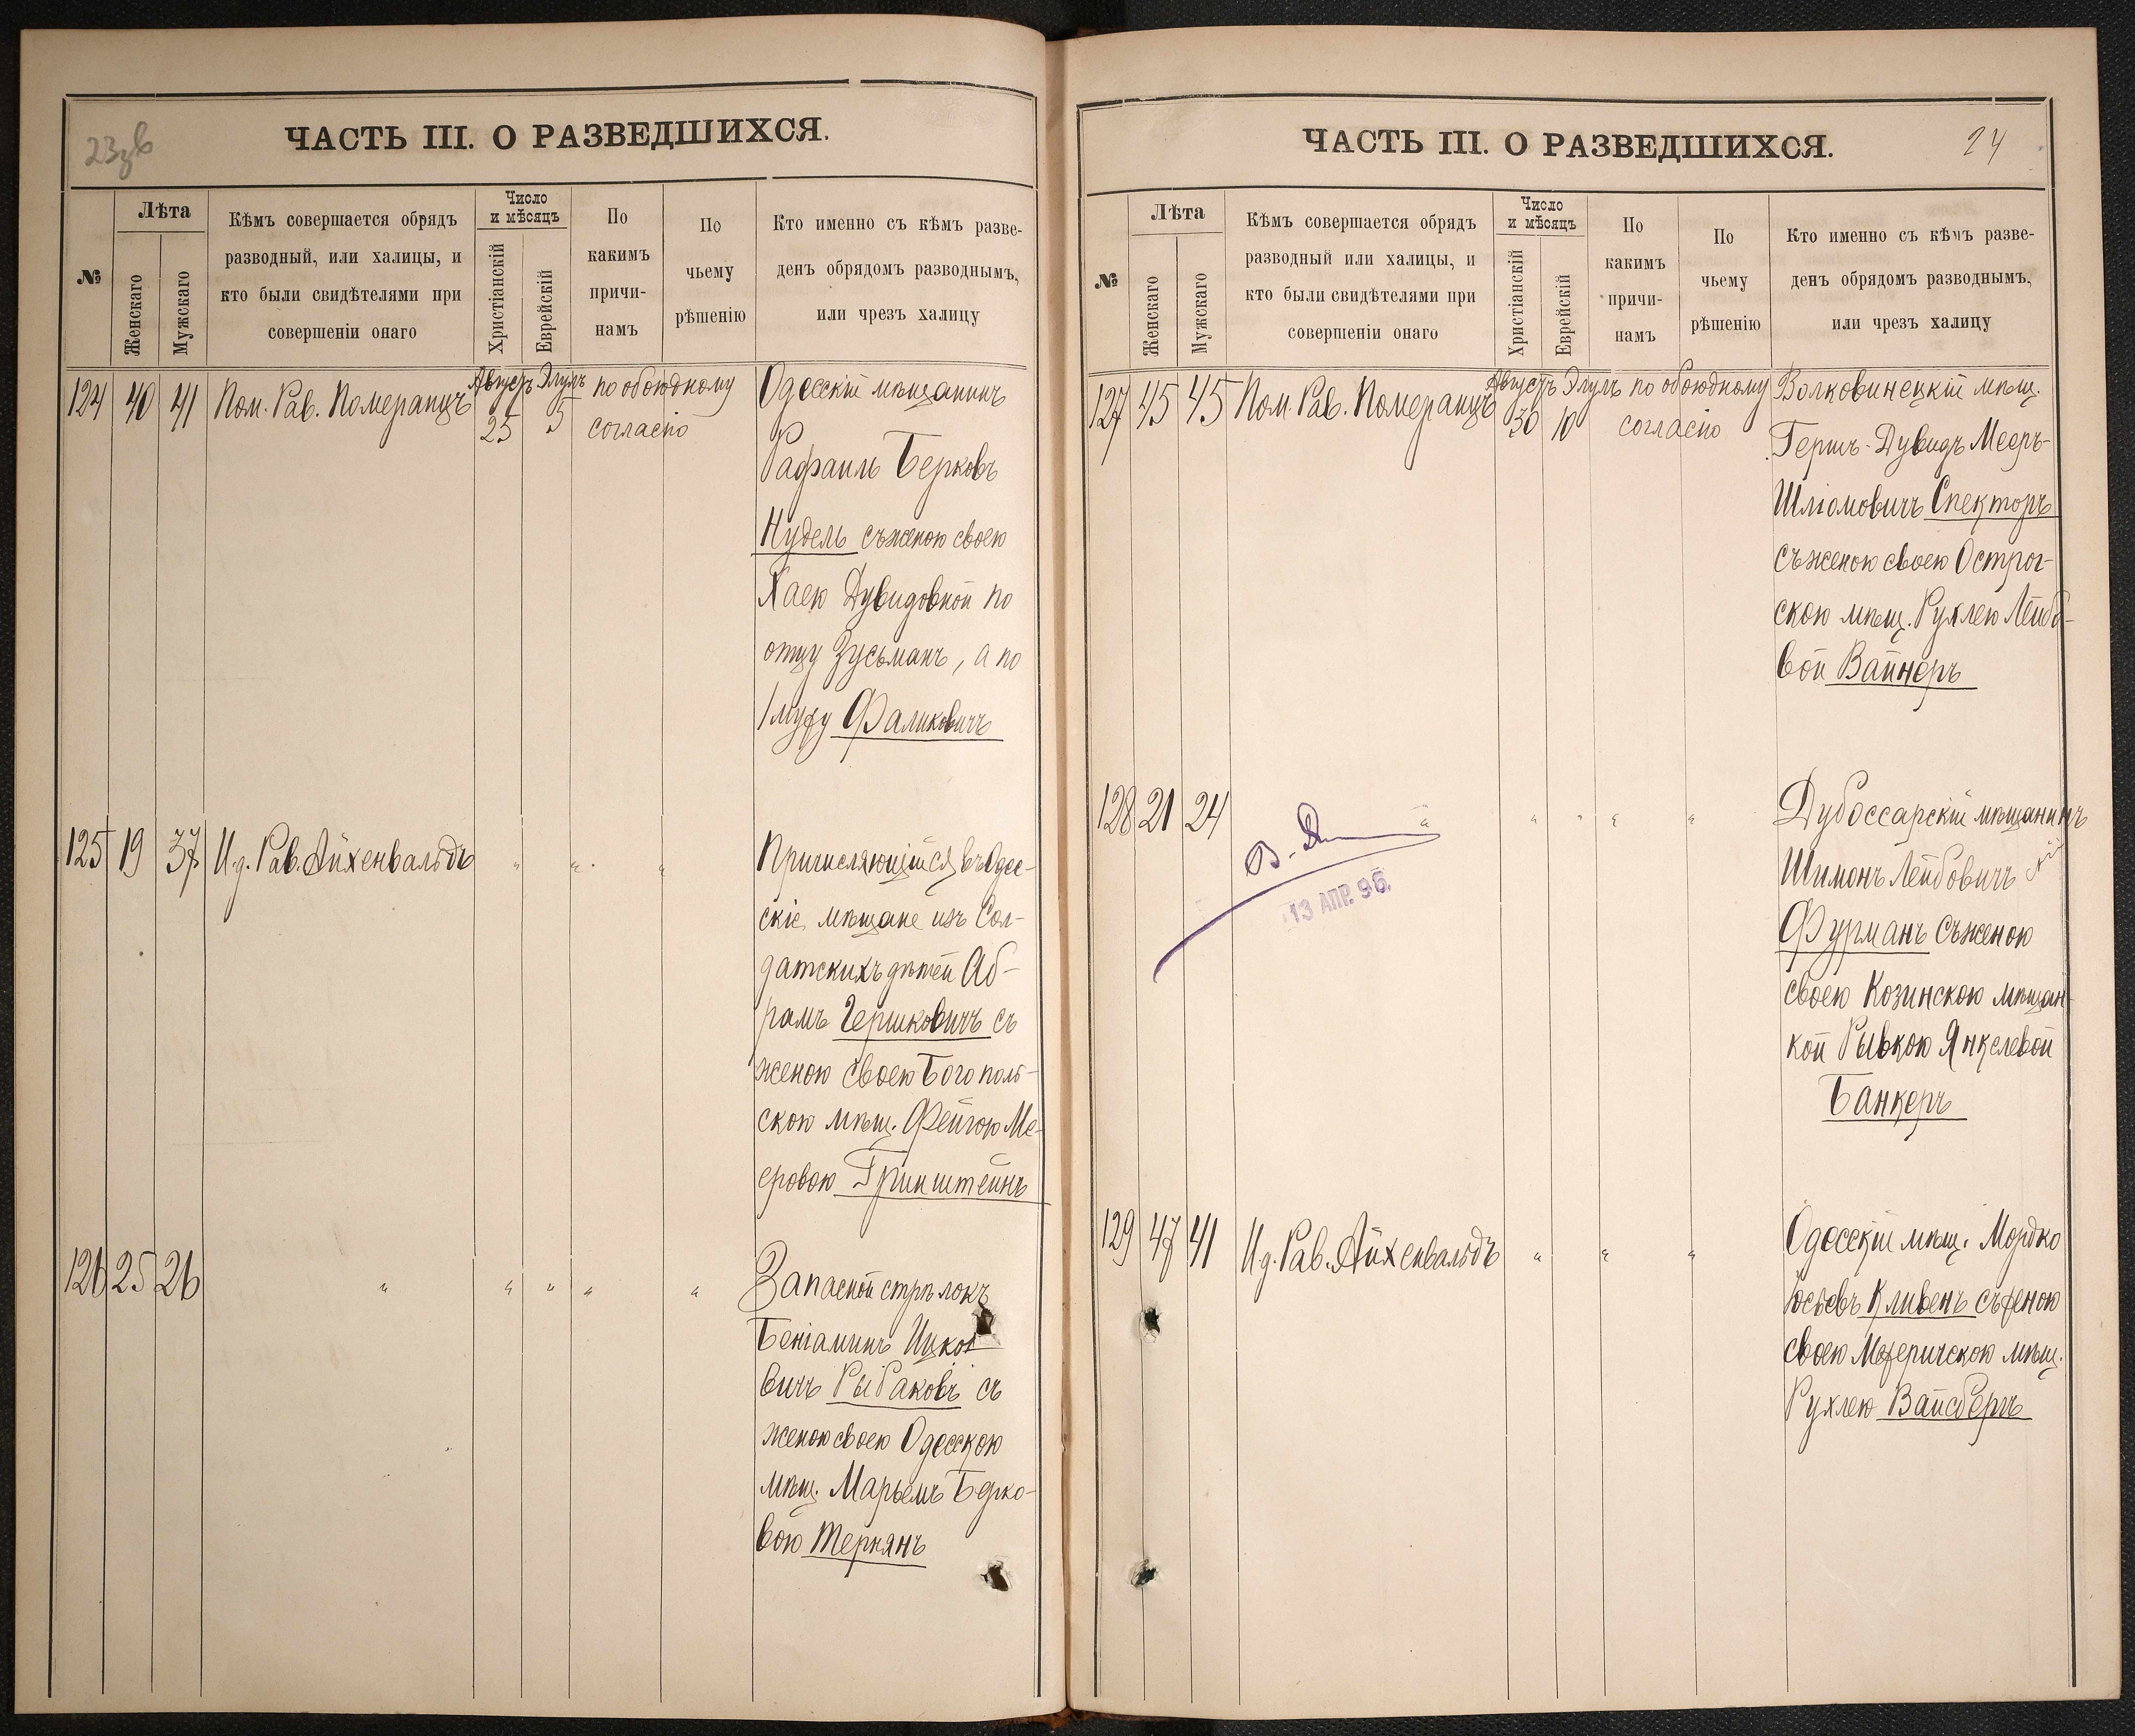 23 об
ЧАСТЬ III. О РАЗВЕДШИХСЯ.
№
Лѣта
Женскаго
Мужскаго
Кѣмъ совершается обрядъ
разводный, или халицы, и
кто были свидѣтелями при
совершеніи онаго
Число
и мѣсяцъ
Христіанскій
Еврейскій
По
какимъ
причи-
намъ
По
чьему
рѣшенію
Кто именно съ кѣмъ разве-
денъ обрядомъ разводнымъ,
или чрезъ халицу
124 40 41 Пом. Рав. Померанцъ Августъ 25 Элулъ 5 по обоюдному
согласію
Одесскій мѣщанинъ
Рафаилъ Берковъ
Нудель съ женою своею
Хаею Дувидовной по
отцу Зусьманъ, а по
1 мужу Фаликовичъ
125 19 37 И.д. Рав. Айхенвальдъ " " "
Причисляющійся въ Одес-
скіе мѣщане изъ Сол-
датскихъ дѣтей Аб-
рамъ Гершковичъ съ
женою своею Богополь-
скою мѣщ. Фейгою Ме-
еровою Гринштейнъ
126 25 26 " " " " "
Запасной стрѣлокъ
Беніаминъ Ицко
вичъ Рыбаковъ съ
женою своею Одесскою
мѣщ. Марьемъ Берко-
вою Тернянъ
24
ЧАСТЬ III. О РАЗВЕДШИХСЯ.
№
Лѣта
Женскаго
Мужскаго
Кѣмъ совершается обрядъ
разводный или халицы, и
кто были свидѣтелями при
совершеніи онаго
Число
и мѣсяцъ
Христіанскій
Еврейскій
По
какимъ
причи-
намъ
По
чьему
рѣшенію
Кто именно съ кѣмъ разве-
денъ обрядомъ разводнымъ,
или чрезъ халицу
127 45 45 Пом. Рав. Померанцъ Августъ 30 Элулъ 10 по обоюдному
согласію
Волковинецкій мѣщ.
Гершъ-Дувидъ Мееръ-
Шліомовичъ Спекторъ
съ женою своею Острог-
скою мѣщ. Рухлею Лейбо-
вой Вайнеръ
128 21 24 " " " " "
13 АПР. 96.
Дубоссарскій мѣщанинъ
Шимонъ Лейбовичъ
Фурманъ съ женою
своею Козинскою мѣщан-
кой Рывкою Янкелевой
Банкеръ
129 47 41 И.д. Рав. Айхенвальдъ " " "
Одесскій мѣщ. Мордко
Іосьевъ Кливенъ съ женою
своею Межеричскою мѣщ.
Рухлею Вайсбергъ